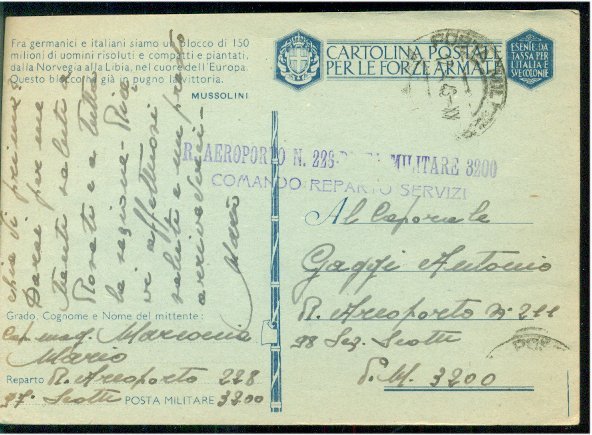 Fra germanici e italiani siamo un blocco di 150
milioni di uomini risoluti e compatti e piantati,
dalla Norvegia alla Libia, nel cuore dell'Europa.
Questo blocco ha già in pugno la vittoria.
MUSSOLINI
CARTOLINA POSTALE
PER LE FORZE ARMATE
ESENTE DA
TASSA PER
L'ITALIA E
SVE COLONIE
R. AEROPORTO N. 228 MILITARE 3200
COMANDO REPARTO SERVIZI
Al Caporale
Gaggi Antonio
R. Areoporto n° 211
98 Sez. Scotti
P. M. 3200
di prima
per me
Tanti saluti a
e a tutta
la
vi affettuosi
saluti e un presto
arrivederci
Mario
Grado, Cognome e Nome del mittente:
Cap. mag.
Mario
Reparto R. Areoporto 228
97° Scotti POSTA MILITARE 3200